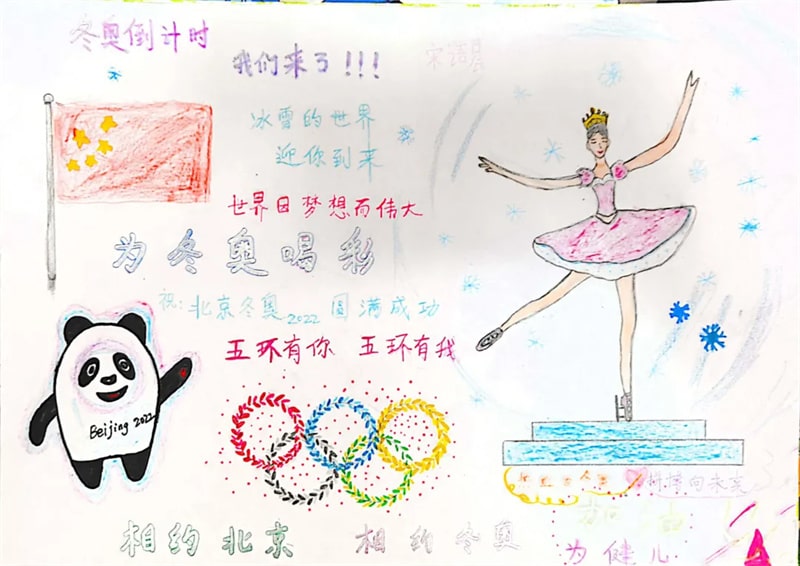 冬奥倒计时
我们来了!!!
冰雪的世界
迎你到来
世界因梦想而伟大
为冬奥喝彩
祝:北京冬奥2022圆满成功
五环有你 五环有我
Beijing 2022
向未来
相约北京 相约冬奥
为健儿